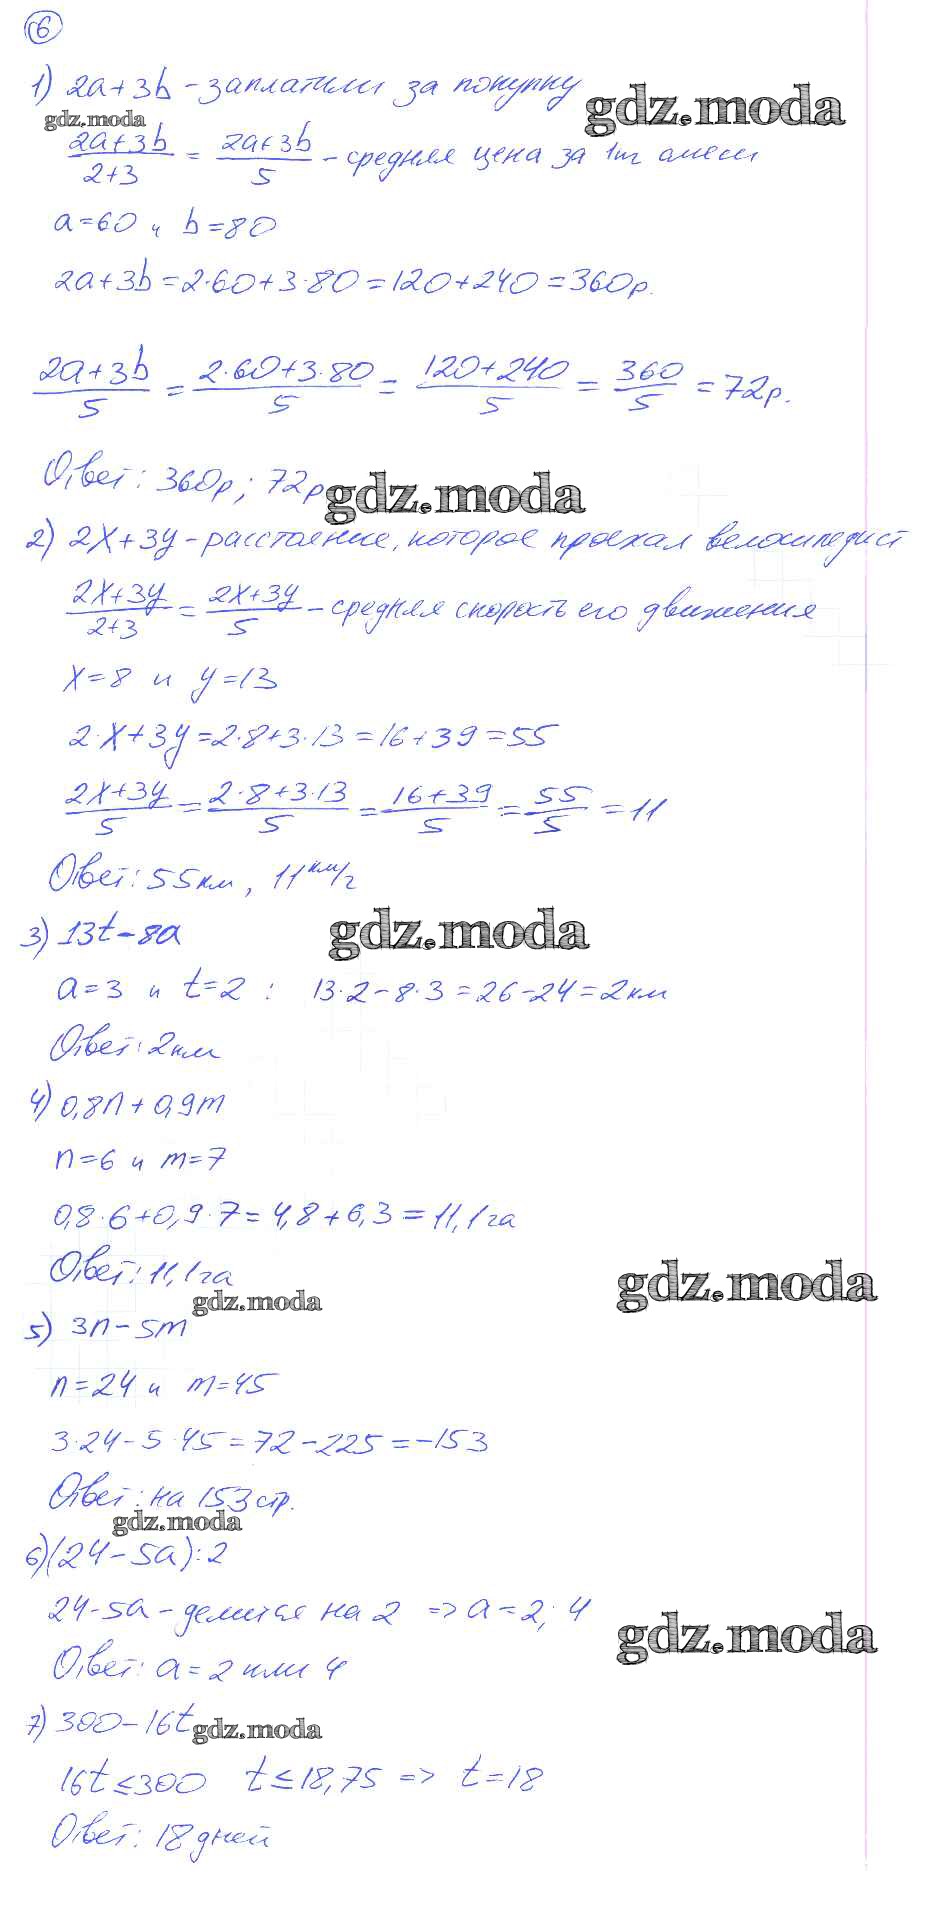 6
1) 2a+3b - заплатили за покупку
gdz.moda
gdz.moda
(2a+3b)/(2+3) = (2a+3b)/5 - средняя цена за 1 т смеси
a=60 и b=80
2a+3b=2·60+3·80=120+240=360р.
(2a+3b)/5 = (2·60+3·80)/5 = (120+240)/5 = 360/5 = 72р.
Ответ: 360р; 72р
gdz.moda
2) 2x+3y - расстояние, которое проехал велосипедист
(2x+3y)/(2+3) = (2x+3y)/5 - средняя скорость его движения
x=8 и y=13
2·x+3y=2·8+3·13=16+39=55
(2x+3y)/5 = (2·8+3·13)/5 = (16+39)/5 = 55/5 = 11
Ответ: 55км, 11 км/ч
gdz.moda
3) 13t-8a
a=3 и t=2 : 13·2-8·3=26-24=2км
Ответ: 2км
4) 0,8n+0,9m
n=6 и m=7
0,8·6+0,9·7=4,8+6,3=11,1га
Ответ: 11,1га
gdz.moda
gdz.moda
5) 3n-5m
n=24 и m=45
3·24-5·45=72-225=-153
Ответ: на 153стр.
gdz.moda
6) (24-5a):2
24-5a - делится на 2 => a=2; 4
gdz.moda
Ответ: a=2 или 4
7) 300-16t
gdz.moda
16t≤300 t≤18,75 => t=18
Ответ: 18 дней